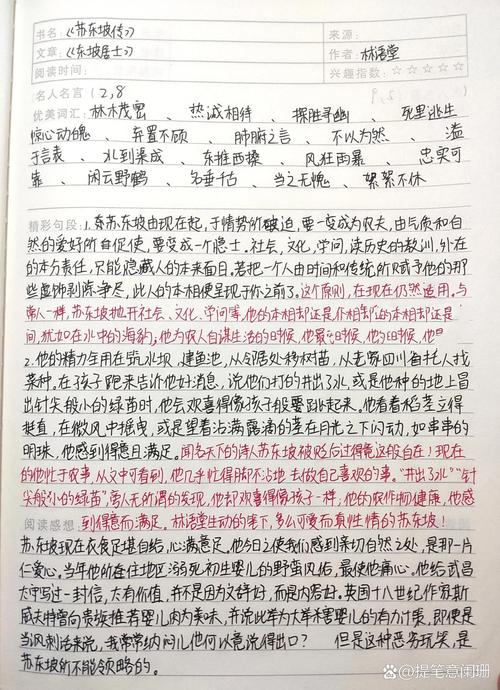 书名:《苏东坡传》 来源:
文章:《东坡居士》 作者:林语堂
阅读时间: 兴趣指数:☆☆☆☆☆
名人名言(2,8
优美词汇:林木茂密、热诚相待、探胜寻幽、死里逃生
惊心动魄、弃置不顾、肺腑之言、不以为然、溢
于言表、水到渠成、东推西搡、风狂雨暴、忠实可
靠、闲云野鹤、名垂千古、当之无愧、絮絮不休
精彩句段:1.苏东坡由现在起,于情势所破迫,要一变成为农夫,由气质和自
然的爱好所自促使,要变成一个隐士。社会,文化,学问,读历史的教训,外在
的本分责任,只能隐藏人的本来面目。若把一个人由时间和传统所赋予他的那
些虚饰剥除净尽,此人的本相便呈现于你之前了。这个原则,在现在仍然适用。与
常人一样,苏东坡抛开社会、文化、学问等,他的本相却正是
间,犹如在水中的海豹。他为农人自谋生活的时候,他
2.他的精力全用在筑水坝,建鱼池,从邻居处移树苗,从老家四川省托人找
菜种。在孩子跑来告诉他好消息,说他们打的井出了水,或是他种的地上冒
出针尖般小的绿苗时,他会欢喜得像孩子般要跳起来。他看着稻茎立得
挺直,在微风中摇曳,或是望着沾满露滴的茎在月光之下闪动,如串串的
明珠,他感到得意且满足。闻名天下的诗人苏东坡被贬后过得竟这般自在!现在
的他忙于农事,从文中可看到,他几乎忙得脚不沾地去做自己喜欢的事。“井出了水”“针
尖般小的绿苗”旁人无所谓的发现,他却欢喜得像孩子一样;他的农作物健康,他感
到得意而满足。林语堂生动的笔下,多么可爱而真性情的苏东坡!
阅读感想:
苏东坡现在衣食足堪自给,心满意足。他今日之使我们感到亲切自然之处,是那一片
仁爱心。当年他所在住地区溺死初生婴儿的野蛮风俗,最使他痛心。他给武昌
太守写过一封信,太有价值,并不是因为文辞好,而是内容好。英国十八世纪作家斯
威夫特曾向贵族推荐婴儿肉为美味,并说此举为大举杀害婴儿的有力计策,即便是
当讽刺话来说,我常常纳闷儿他何以竟说得出口? 但是这种恶劣玩笑,是
苏东坡所不能领略的。
@提笔意闲珊